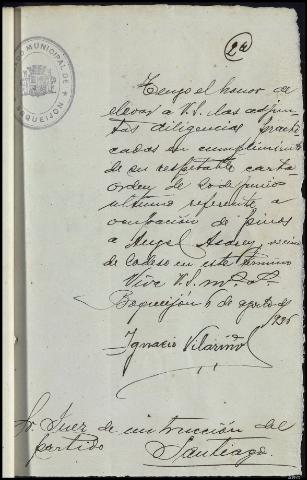 JUZGADO MUNICIPAL DE BOQUEIJON
24
Tengo el honor de
elevar a V.S. las adjun-
tas diligencias practi-
cadas en cumplimiento
de su respetable carta
orden de 20 de junio
ultimo referente a
ocupación de pinos
a Angel Asorey, vecino
de Codeso en este término
Vive V.S. m.s a.s
Boqueijón 6 de agosto de
1936
Ignacio Vilariño
Sr Juez de instrucción del
partido Santiago.